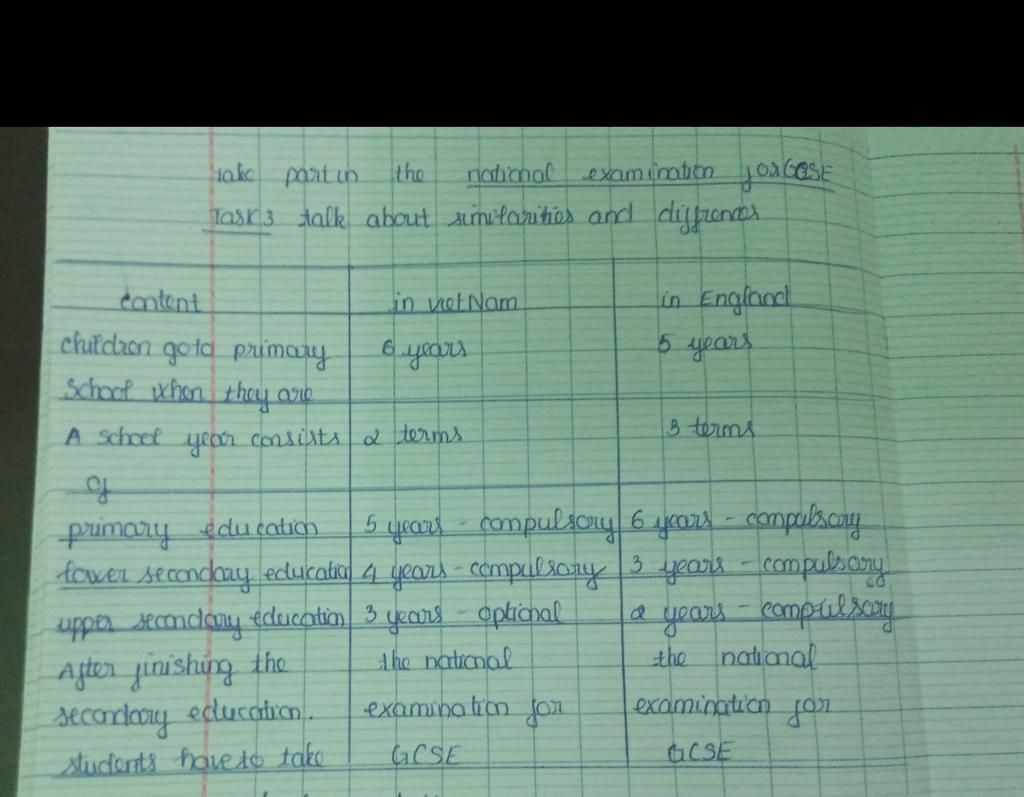 take part in the national examination for GCSE
Task 3 talk about similarities and diffrences
content in VietNam in England
children go to primary 6 years 5 years
School when they are
A school year consists 2 terms 3 terms
of
primary education 5 years - compulsory 6 years - compulsory
lower secondary education 4 years - compulsory 3 years - compulsory
upper secondary education 3 years - optional 2 years - compulsory
After finishing the the national the national
secondary education. examination for examination for
students have to take GCSE GCSE